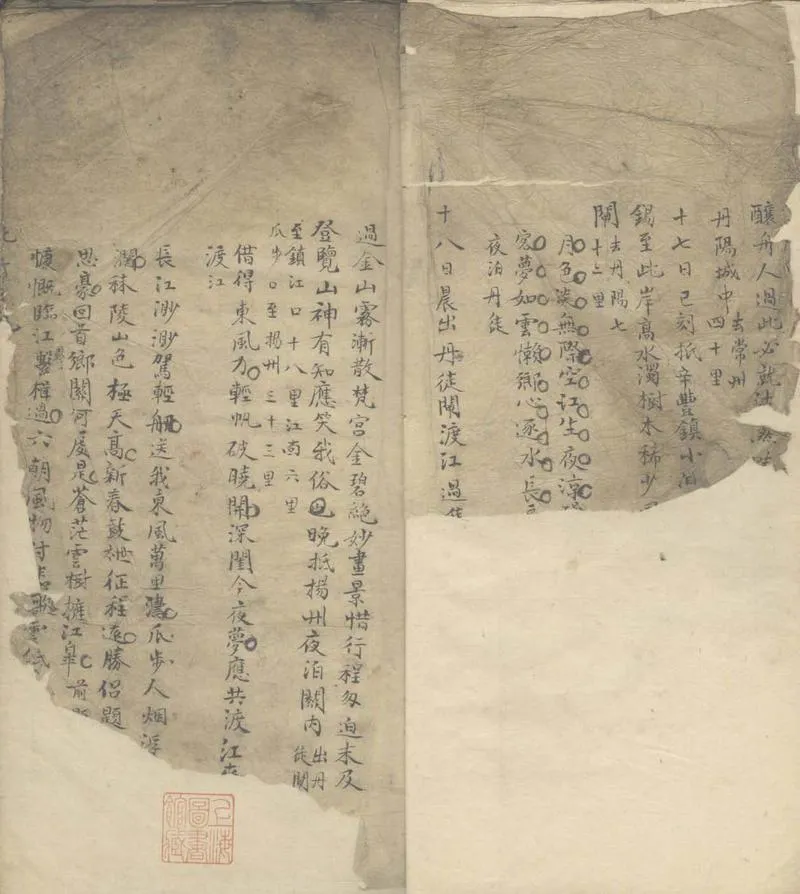 釀舟人過此必就沽
丹陽城中四十里
去常州
十七日巳刻抵辛豐鎮小泊
錫至此岸髙水濁樹木稀少
閘去丹陽七十三里
月色淡無際空江生夜涼
客夢如雲懶鄉心逐水長
夜泊丹徒
十八日晨出丹徒閘渡江過
過金山霧漸散梵宫金碧絶妙畫景惜行程匆迫未及
登覽山神有知應笑我俗也晚抵揚州夜泊關内
出丹徒閘
至鎮江口十八里江南六里
瓜步口至揚州三十三里
借得東風力輕帆破曉開深閨今夜夢應共渡江來
渡江
長江渺渺駕輕舠送我東風萬里濤瓜步人烟浮
濶秣陵山色極天髙新春鼓枻征程遠勝侣題
思豪回首鄉關何處是蒼茫雲樹擁江臯前題
慷慨臨江擊楫過六朝風物付長歌雲低
上海圖書館藏